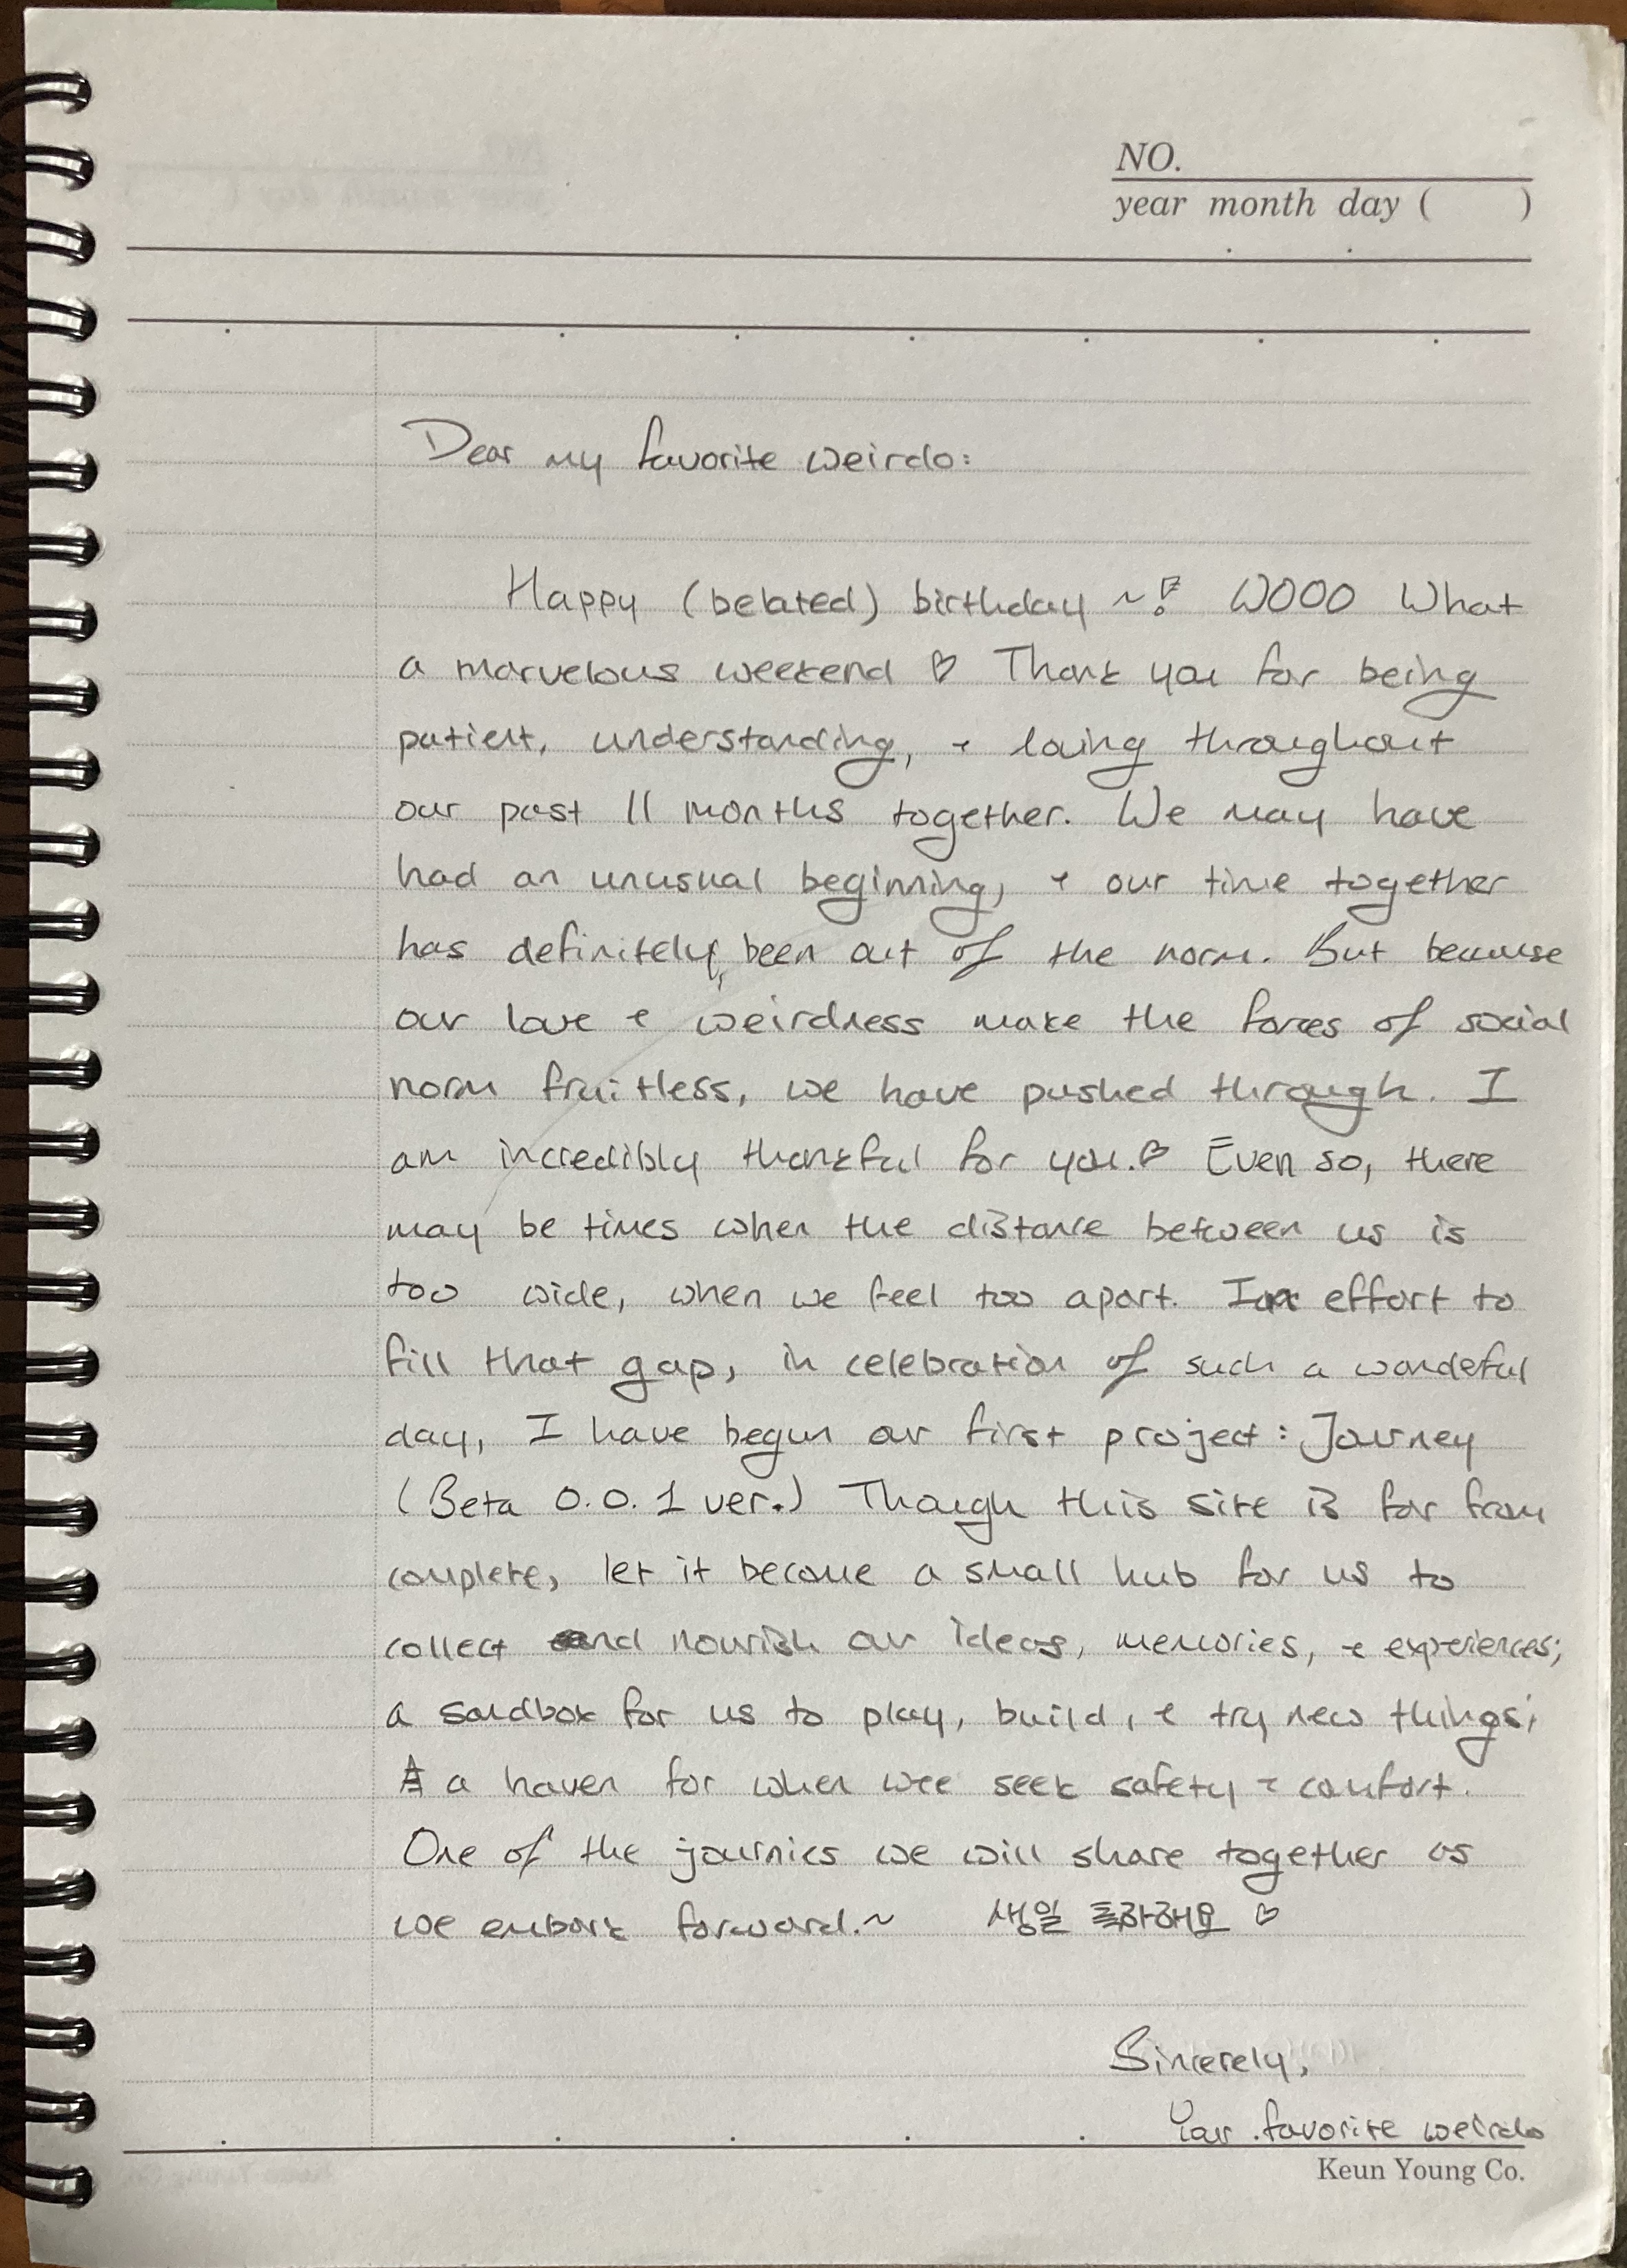 NO.
year month day ( )
Dear my favorite weirdo:
Happy (belated) birthday ~! WOOO What
a marvelous weekend ♡ Thank you for being
patient, understanding, + loving throughout
our past 11 months together. We may have
had an unusual beginning, + our time together
has definitely been out of the norm. But because
our love + weirdness make the forces of social
norm fruitless, we have pushed through. I
am incredibly thankful for you.♡ Even so, there
may be times when the distance between us is
too wide, when we feel too apart. In effort to
fill that gap, in celebration of such a wondeful
day, I have begun our first project: Journey
(Beta 0.0.1 ver.) Though this site is far from
complete, let it become a small hub for us to
collect and nourish our ideas, memories, + experiences;
a sandbox for us to play, build, + try new things;
a haven for when wee seek safety + comfort.
One of the journies we will share together as
we embark forward.~ 생일 축하해요 ♡
Sincerely,
Your favorite weirdo
Keun Young Co.